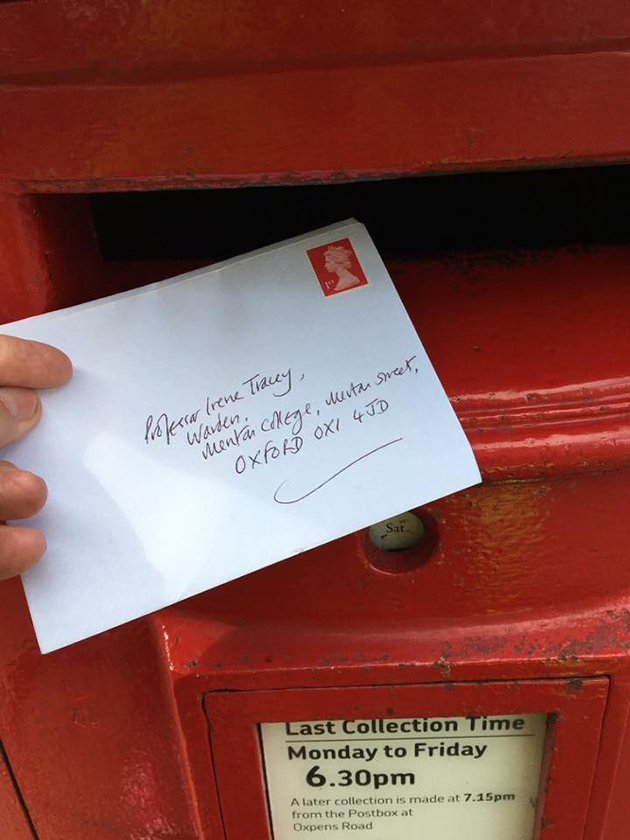 1st
Professor Irene Tracey,
Warden,
Merton College, Merton Street,
OXFORD OX1 4JD
Sat
Last Collection Time
Monday to Friday
6.30pm
A later collection is made at 7.15pm
from the Postbox at
Oxpens Road